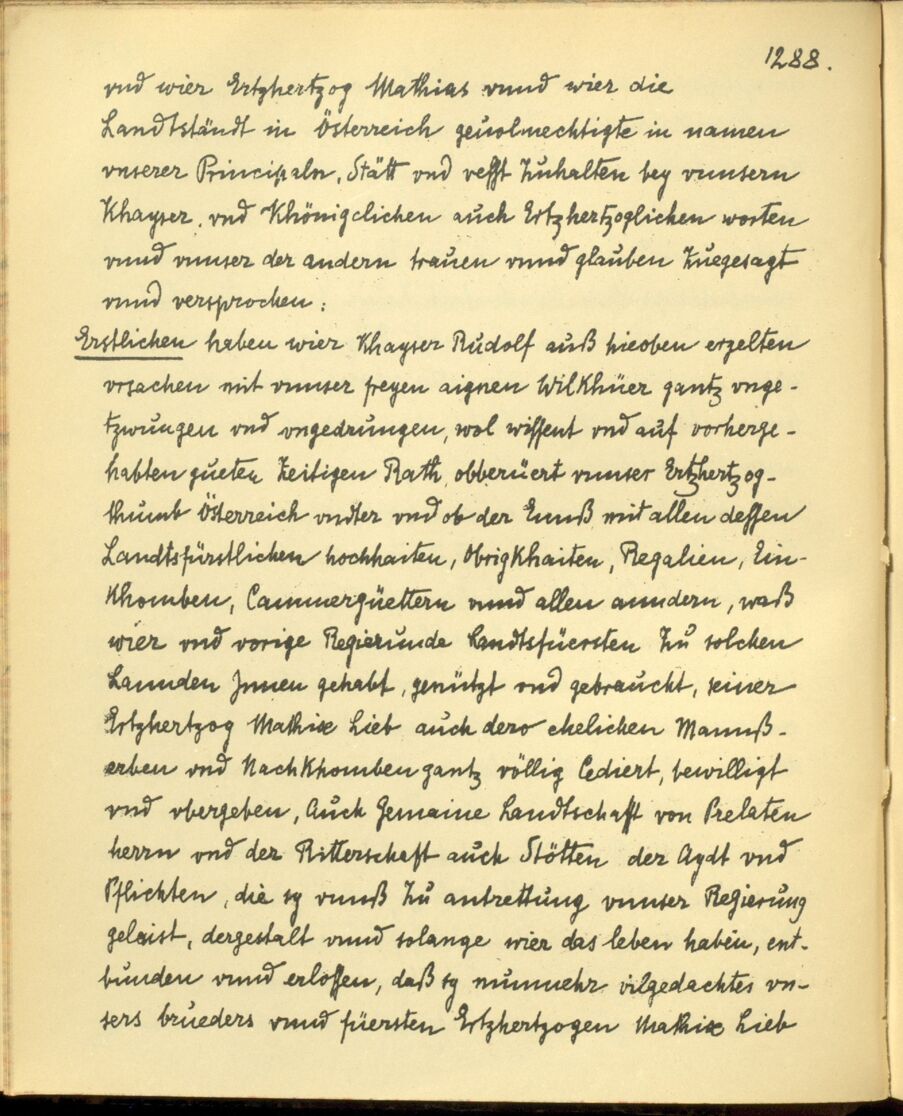 1288.
vnd wier Ertzhertzog Mathias vnnd wier die
Landtständt in Österreich geuolmechtigte in namen
vnserer Principaln, Stätt vnd vesst Zuhalten bey vnnsern
Khayser. vnd Khönigclichen auch Ertzhertzoglichen worten
vnnd vnnser der andern trauen vnnd glauben Zuegesagt
vnnd versprochen:
Erstlichen haben wier Khayser Rudolf auß hieoben erzelten
vrsachen mit vnnser freyen aignen Wilkhüer gantz vnge-
tzwungen vnd vngedrungen, wol wissent vnd auf vorherge-
habten gueten Zeitigen Rath, obberüert vnnser Ertzhertzog-
thumb Österreich vndter vnd ob der Ennß mit allen dessen
Landtsfürstlichen hochhaiten, Obrigkhaiten, Regalien, Ein-
khomben, Cammergüettern vnnd allen anndern, waß
wier vnd vorige Regierunde Landtsfüersten Zu solchen
Lannden Jnnen gehabt, genützt vnd gebraucht, seiner
Ertzhertzog Mathiæ Lieb auch dero ehelichen Mannß-
erben vnd Nachkhomben gantz völlig Cediert, bewilligt
vnd vbergeben, Auch Gemaine Landtschafft von Prelaten
herrn vnd der Ritterschaft auch Stötten der Aydt vnd
Pflichten, die sy vnnß Zu antrettung vnnser Regierung
gelaist, dergestalt vnnd solange wier das leben haben, ent-
bunden vnnd erlossen, daß sy nunmehr vilgedachtes vn-
sers brueders vnnd füersten Ertzhertzogen Mathiæ Lieb